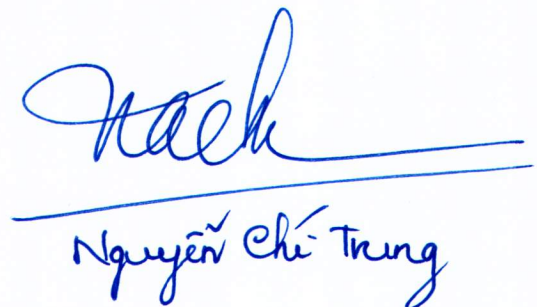 Nguyễn Chí Trung